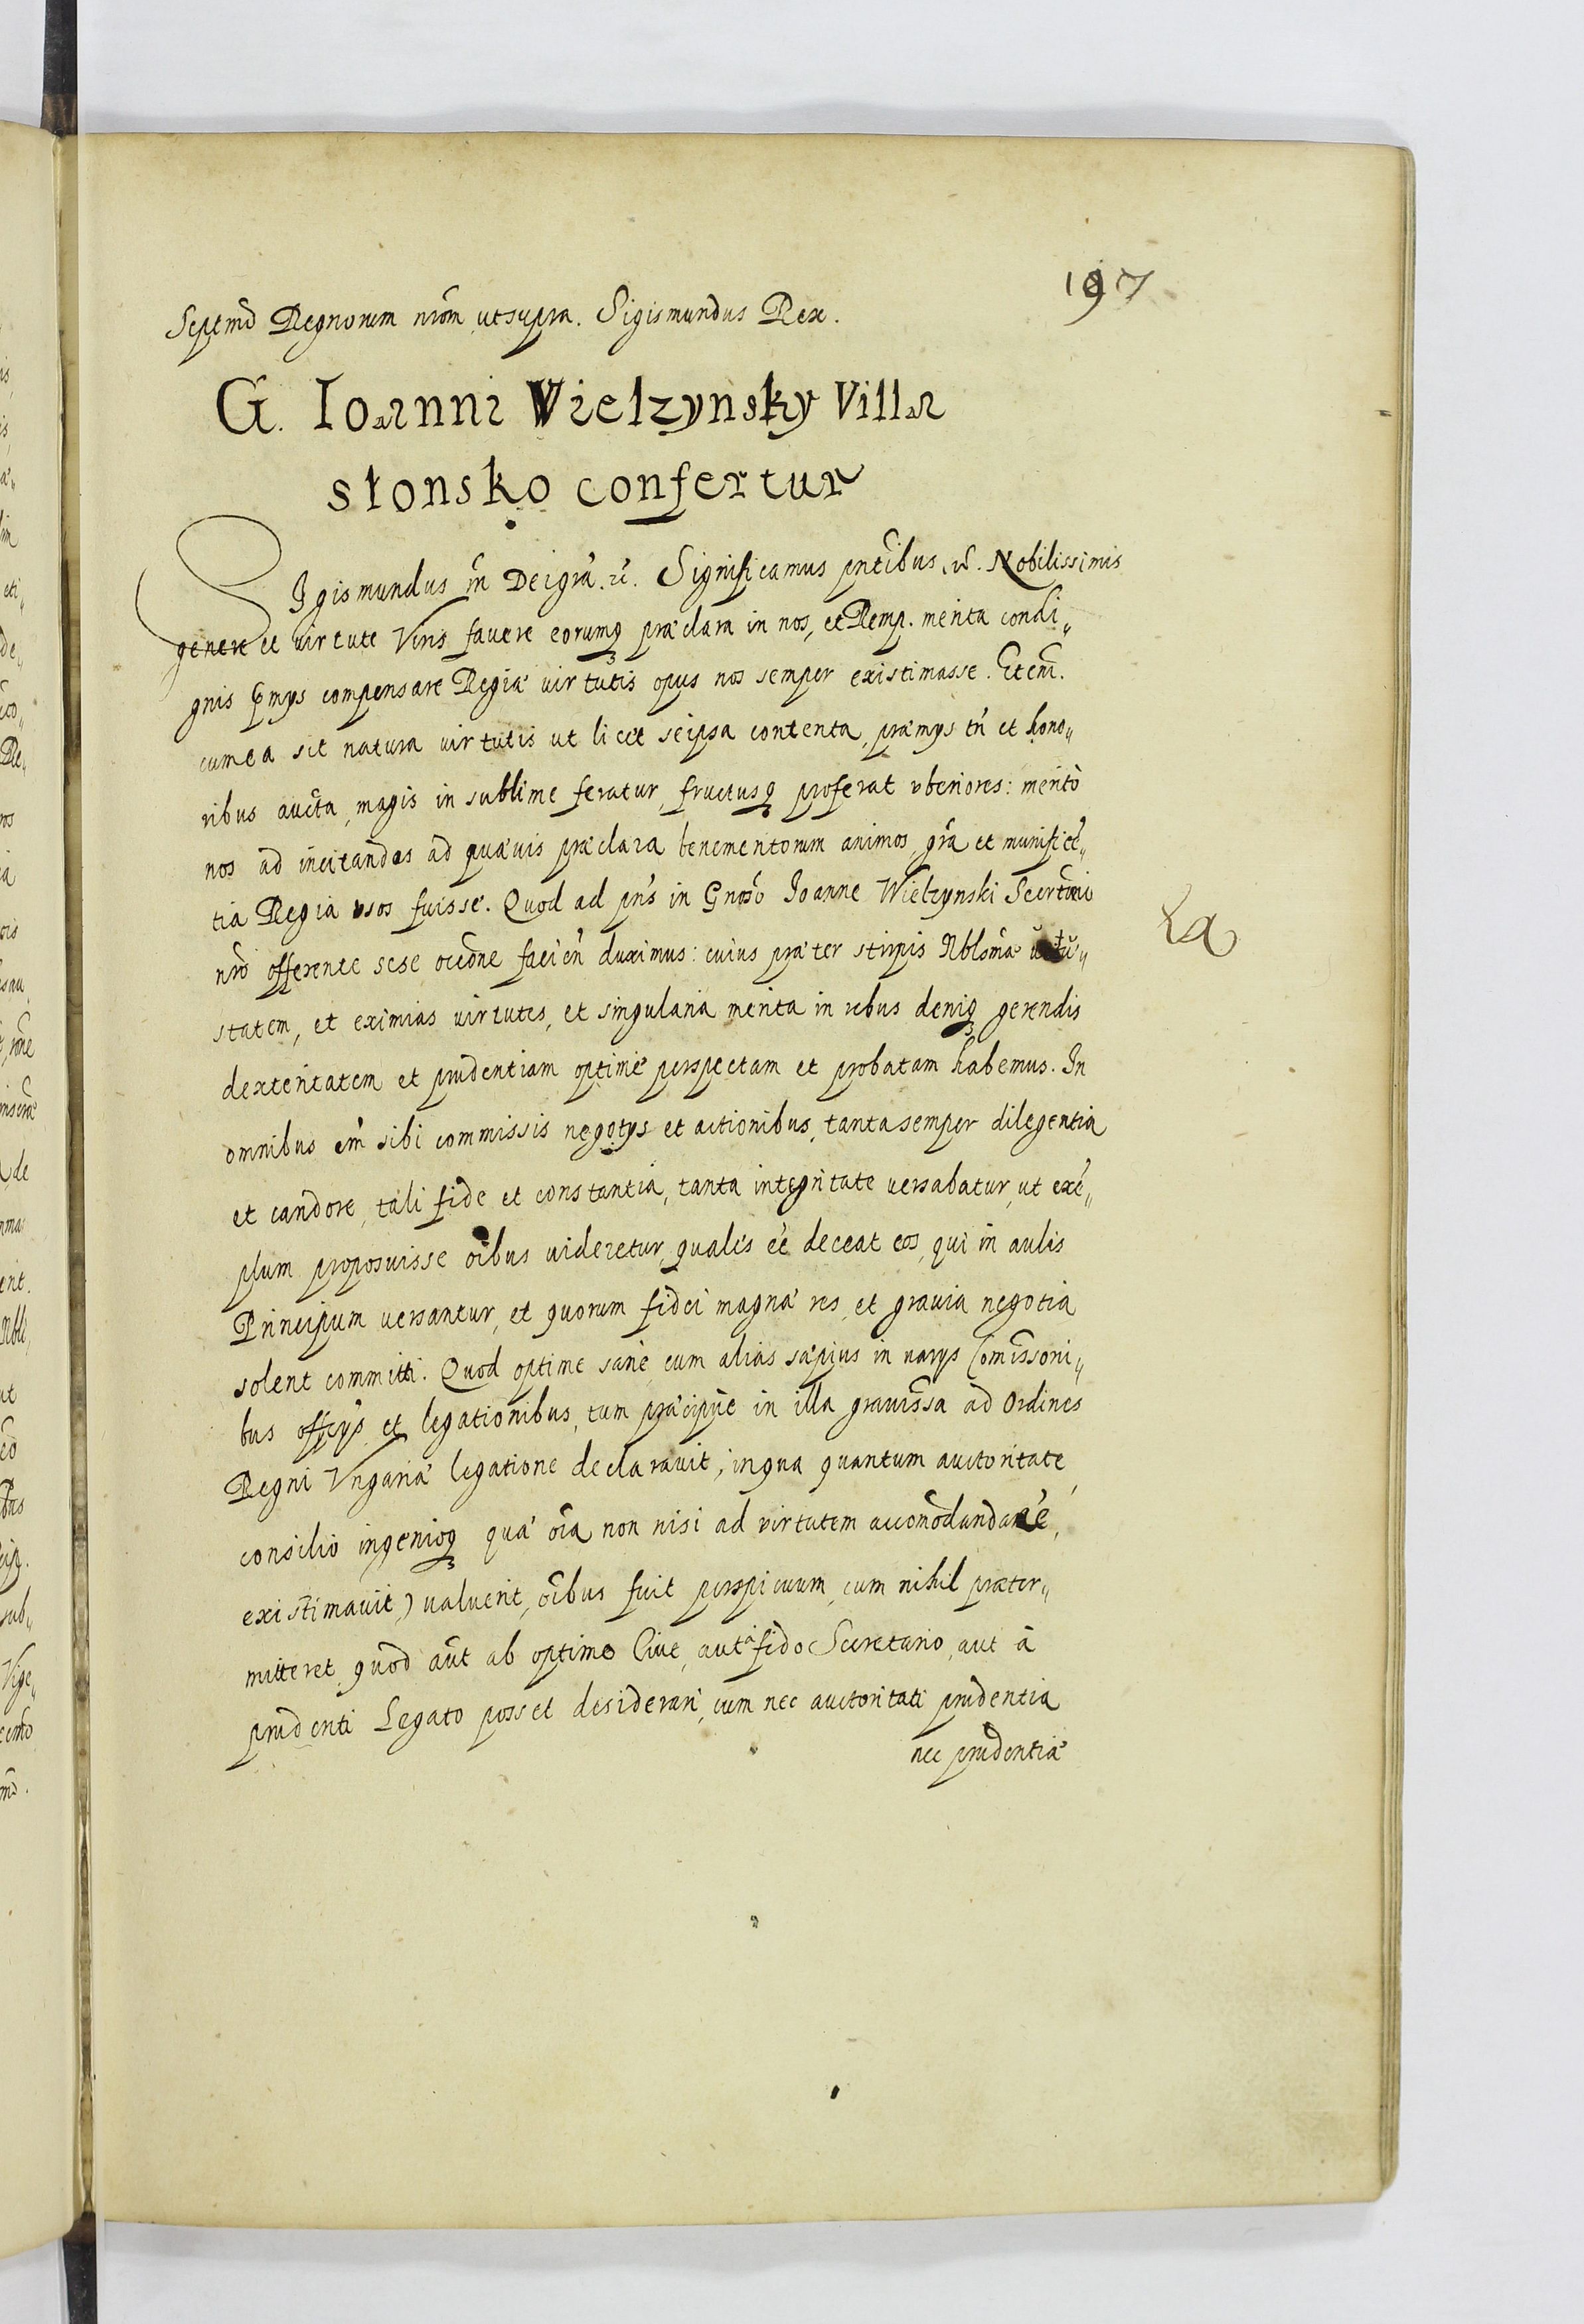 197
Septmo Regnorum nrōm utsupra. Sigismundus Rex.
G. Ioanni Wielzynsky Villa
słonsko confertur
SIgismundus iii Dei grā. &c. Significamus pntibus. &c. Nobilissimis
genere et virtute Viris favere eorumq præclara in nos, et Remp. merita condi„
gnis pmys compensare Regiæ virtutis opus nos semper existimasse. Etem.
cum ea sit natura virtutis ut licet seipsa contenta, præmys tn et hono„
ribus aucta, magis in sublime feratur, fructusq proferat vberiores: meritò
nos ad incitandos ad quævis præclara benemeritorum animos, grā et munificē„
tia Regia vsos fuisse. Quod ad pns in Gnoso Ioanne Wielzynski Secrtario
nro offerente sese occōne facien duximus: cuius præter stirpis Nblsmæ vetu„
statem, et eximias virtutes, et singularia merita in rebus deniq gerendis
dexteritatem et prudentiam optimè perspectam et probatam habemus. In
omnibus em sibi commissis negotys et actionibus, tanta semper diligentia
et candore, tali fide et constantia, tanta integritate versabatur, ut exē„
plum proposuisse oibus videretur, quales eē deceat eos, qui in aulis
Principum versantur, et quorum fidei magnæ res, et gravia negotia
solent committi. Quod optime sanè cum alias sæpius in varys Comissoni„
bus officys et legationibus, tum præcipue in illa gravissa ad Ordines
Regni Vngariæ legatione declaravit, in qua quantum auctoritate,
consilio ingenioq quæ oia non nisi ad virtutem accomodanda eē,
existimavit,) valuerit, oibus fuit perspicuum, cum nihil præter„
mitteret, quod aut ab optimo Cive, aut à fido Secretario, aut à
prudenti Legato posset desiderari, cum nec auctoritati prudentia
nec prudentiæ